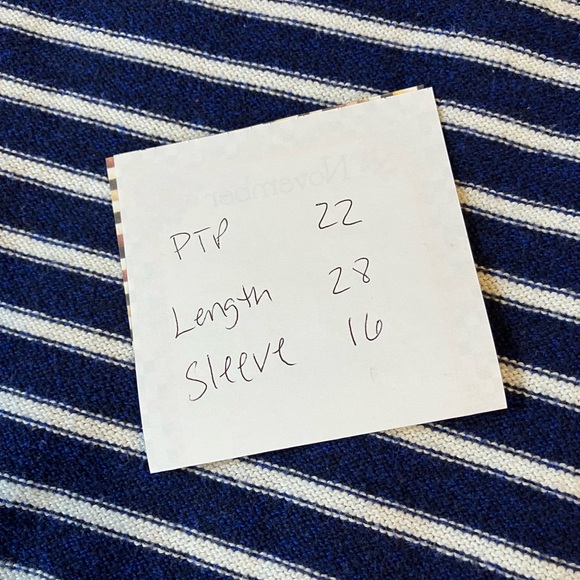 November
PTP 22
Length 28
Sleeve 16